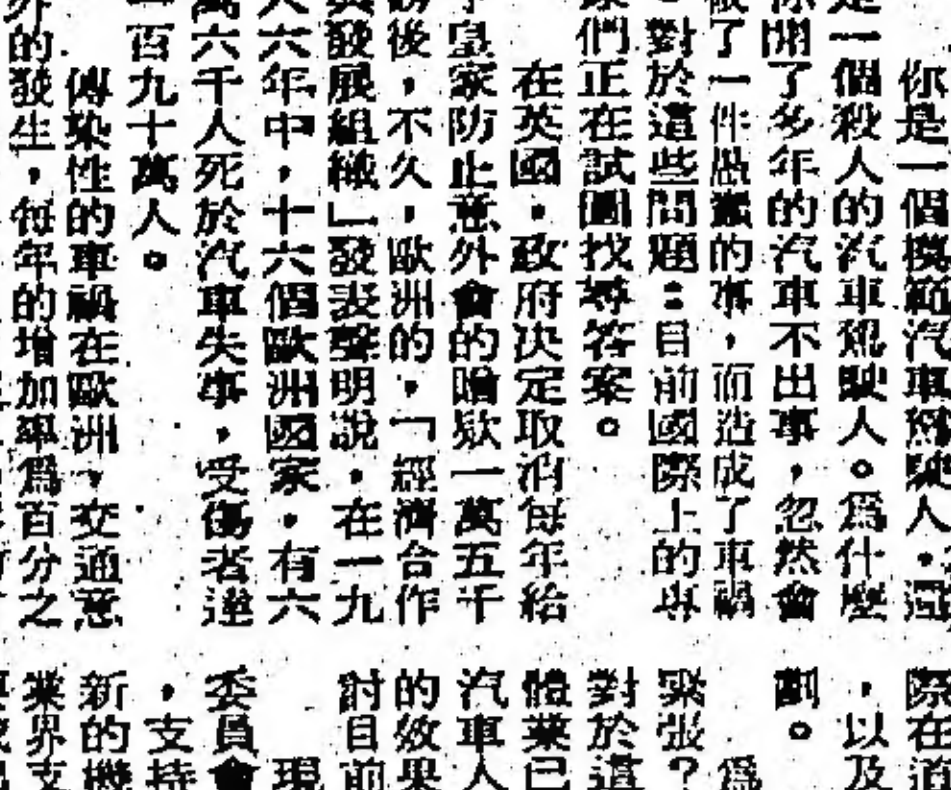 你是一個模範汽車駕駛人，這
是一個殺人的汽車駕駛人。爲什麽
你開了多年的汽車不出事，忽然會
做了一件愚蠢的事，而造成了車禍
。對於這些問題：目前國際上的專
家們正在試圖找尋答案。
在英國，政府决定取消每年給
皇家防止意外會的贈欵一萬五千
後，不久，歐洲的，「經濟合作
發展組織」發表聲明說，在一九
六年中，十六個歐洲國家，有六
萬六千人死於汽車失事，受傷者達
一百九十萬人。
傳染性的車禍在歐洲，交通意
外的發生，每年的增加率爲百分之
際在道
，以及
劃。
爲
緊張？
對於這
體業已
汽車人
的效果
討目前
現
委員會
，支持
新的機
業界支